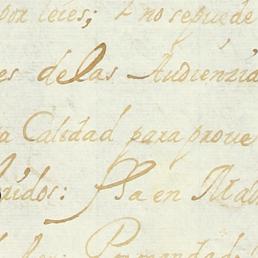 por leies; Y no sepuede
es delas Audienzia
a Calidad para prove
idos: Ha en Mad